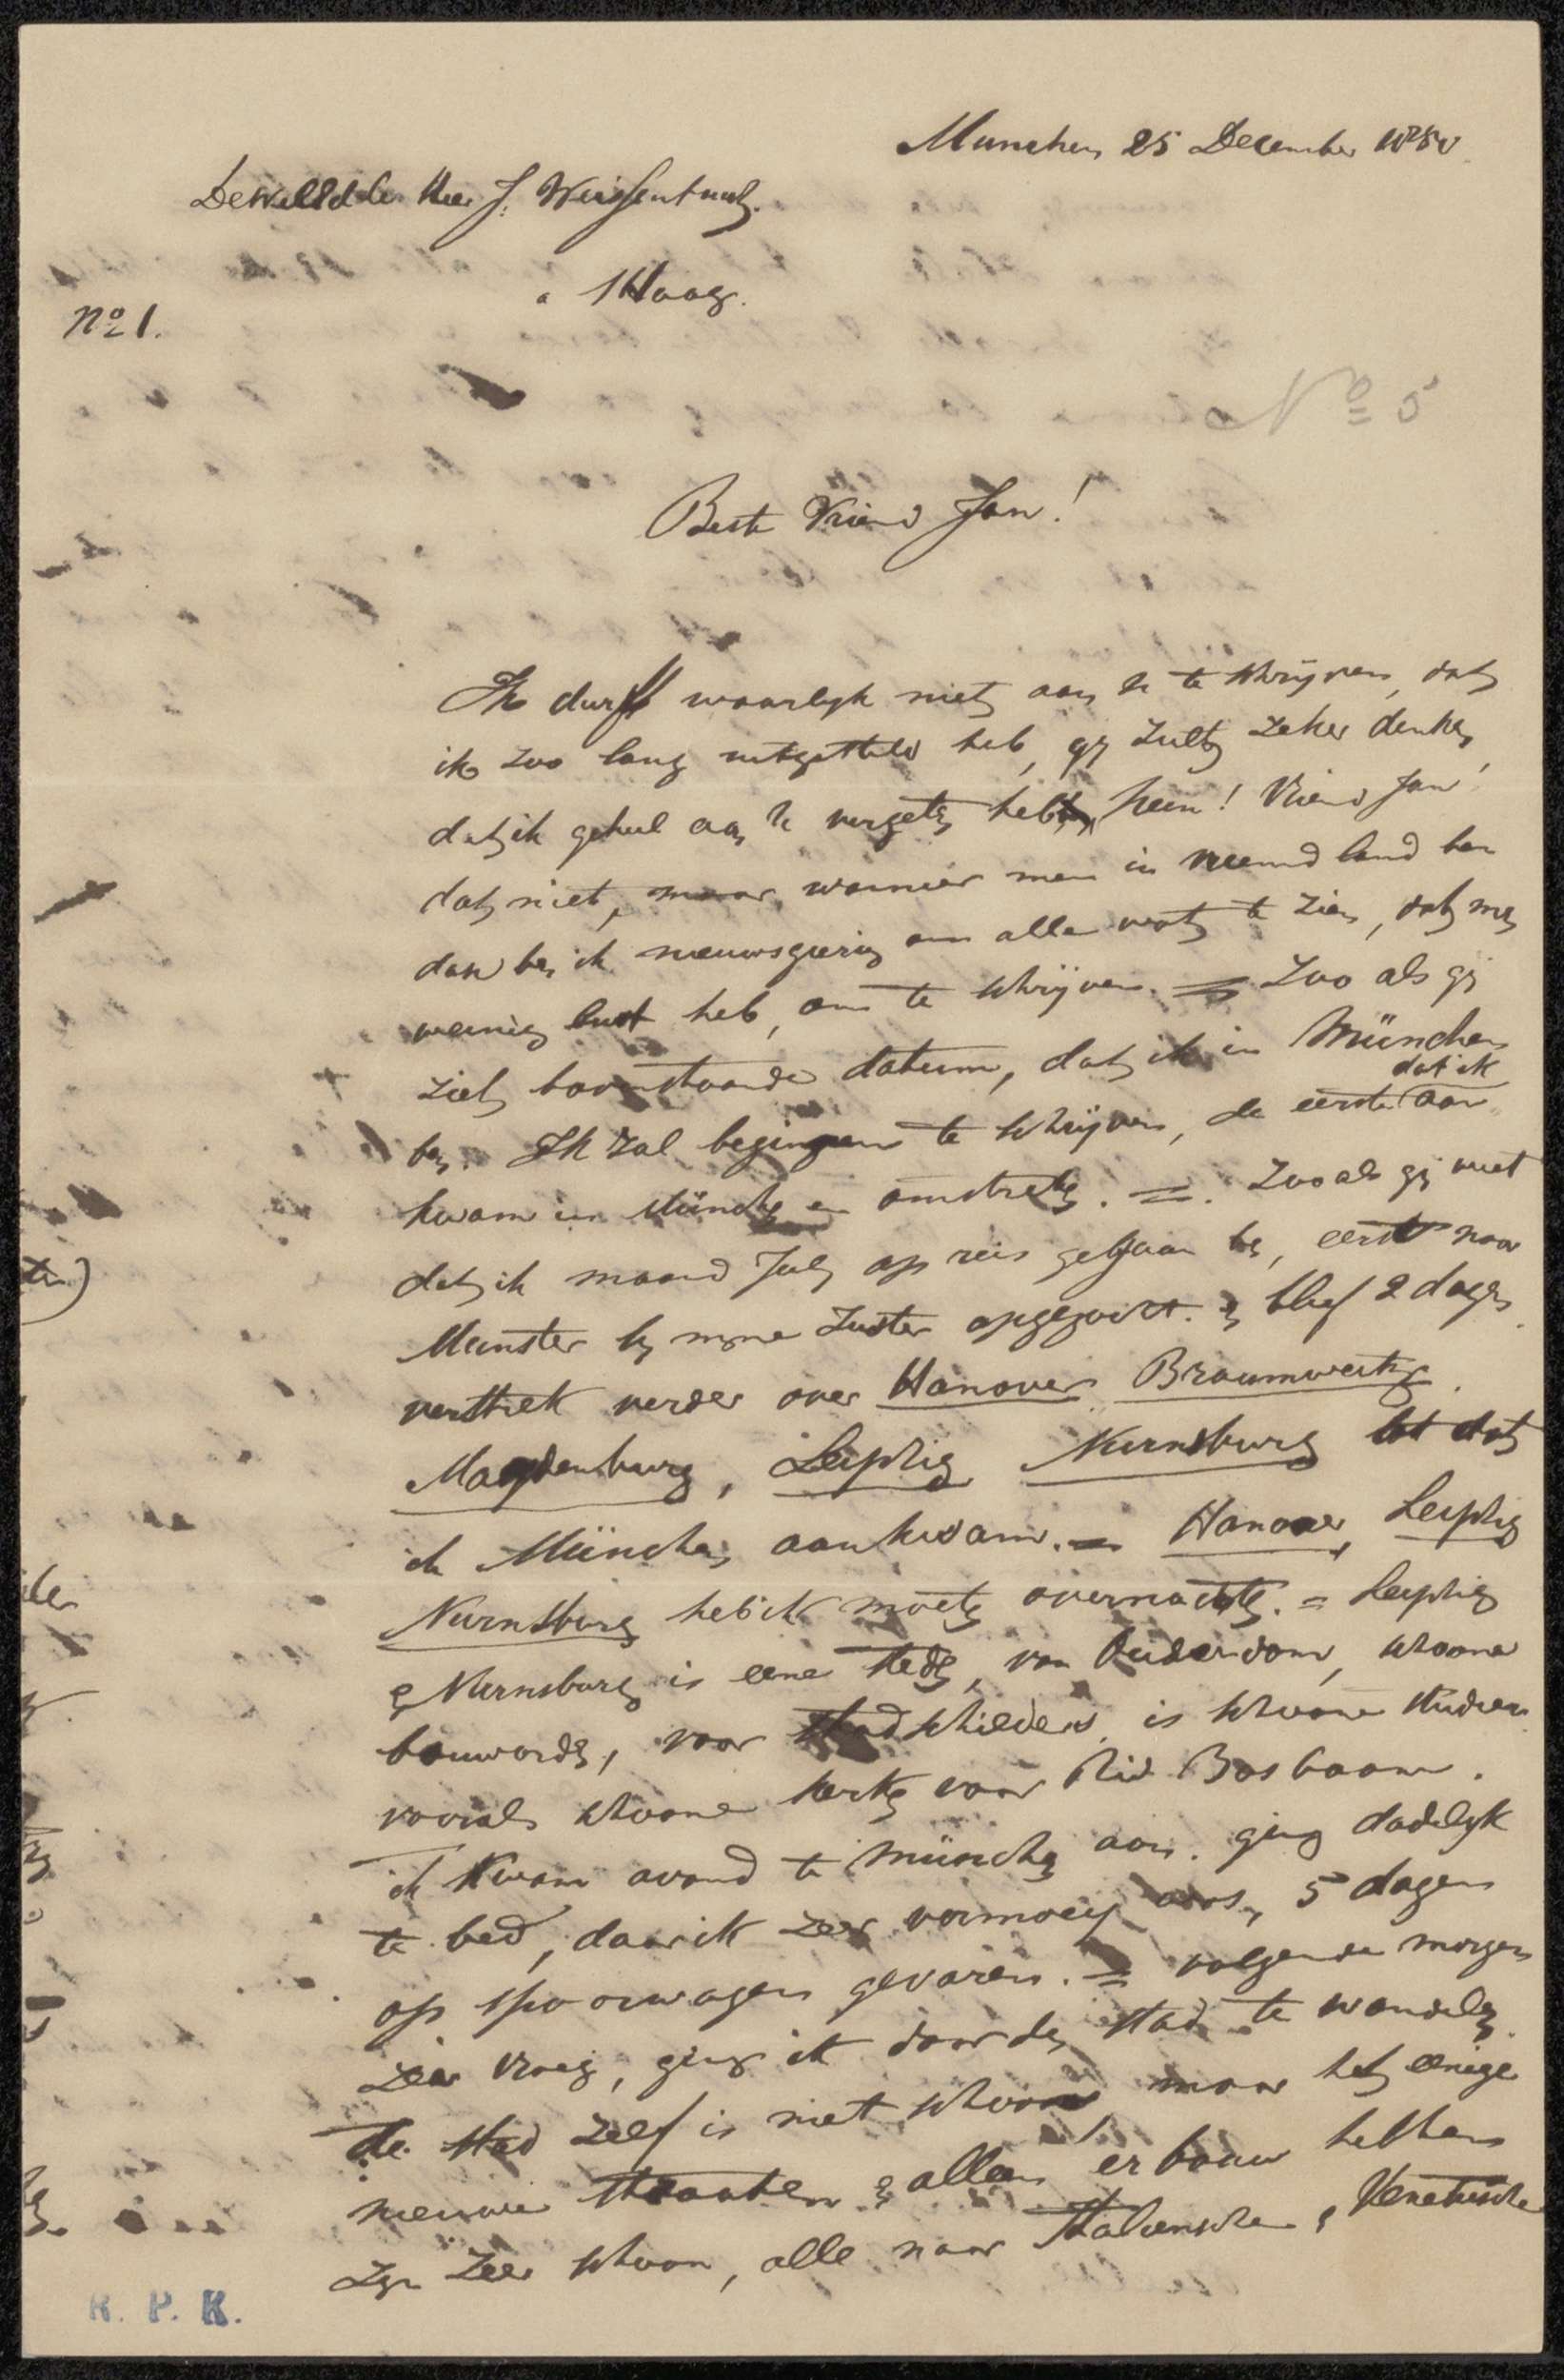 Munchen 25 December 1850
DeWelEdele Heer J. Weissenbruch.
a 'sHaag.
No 1.
No 5
Beste Vriend Jan!
Ik durft waarlyk niet aan U te schrijven, dat
ik zoo lang uitgesteld heb, gy zult zeker denken,
dat ik geheel aan U vergeten heb, Neen! Vriend Jan!
dat niet, maar wanneer men in vreemd land ben
dan ben ik nieuwsgierig om alle wat te zien, dat men
weinig lust heb, om te schrijven. = Zoo als gij
ziet bovenstaande datum, dat ik in München
dat ik
ben. Ik zal beginnen te schrijven, de eerste aan
kwam in München en omstreken. =. Zoo als gij weet
dat ik maand July op reis gegaan ben, eerst naar
Munster by myne Zuster opgezocht. en bleef 2 dagen
verttrek verder over Hanover Braumweik
Magdenburg, Leipzig Nurnburg tot dat
ik München aankwam. = Hanover, Leipzig
Nurnburg heb ik moeten overnachten. = Leipzig
& Nurnburg is eene steden, van Ouderdom, schoone
bouworde, voor stadschilders is schoone studien
vooral schoone kerken voor Rid Bosboom.
ik Kwam avond te München aan. ging dadelyk
te bed, daar ik zeer vermoeyd was, 5 dagen
op spoorwagen gevaren. = volgende morgen
zeer vroeg, ging ik door den stad te wandelen
de stad zelf is niet schoon, maar het eenige
nieuwe straaten & allen er bouw hebben
zyn zeer schoon, alle naar Italiensche & Venetische
ten)
R. P. K.